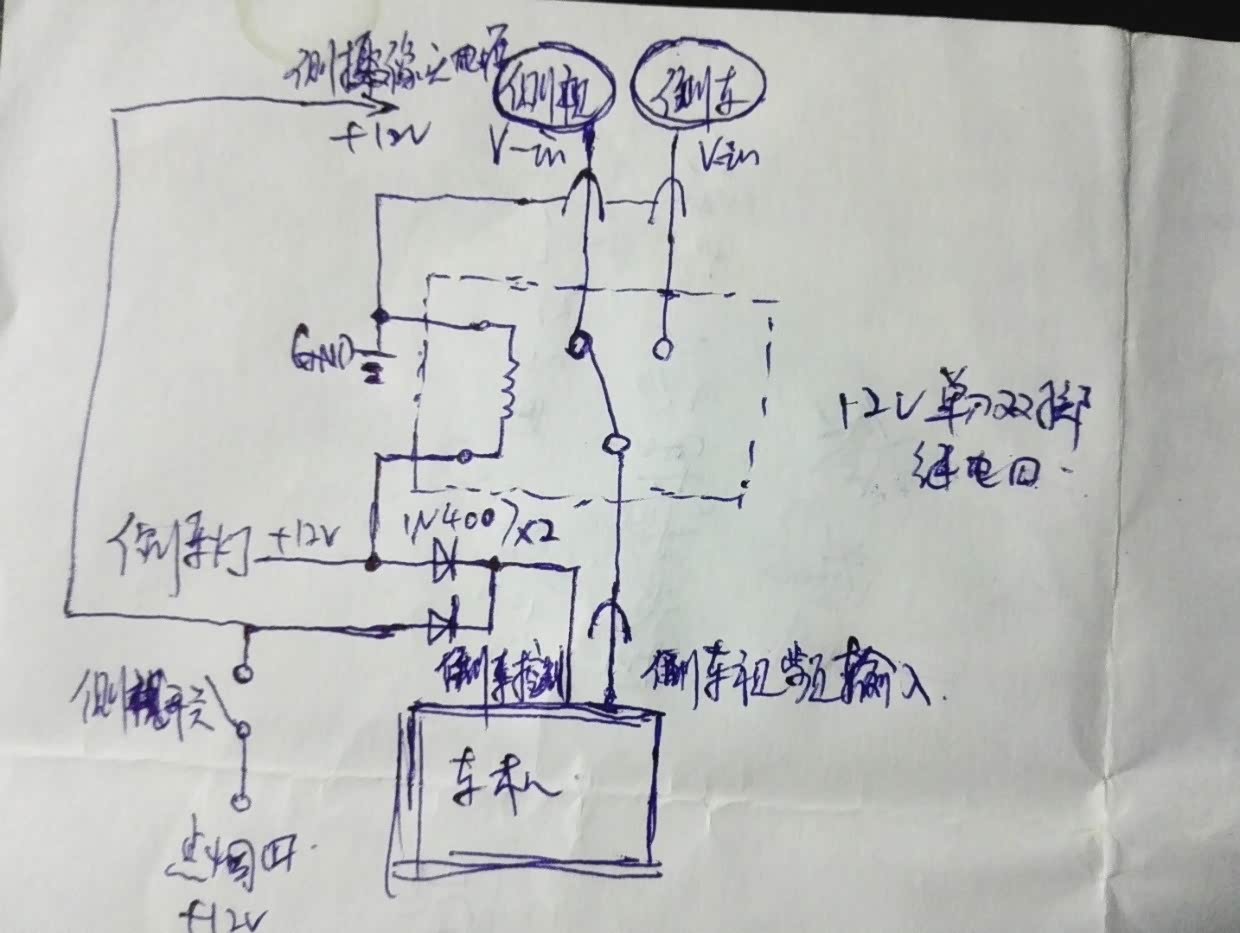 侧摄像头电源
+12V
侧视
倒车
V-in
V-in
GND
+12V 单刀双掷
继电器
倒车灯 +12V
1N4007×2
侧视开关
倒车控制
倒车视频输入
车机
点烟器
+12V